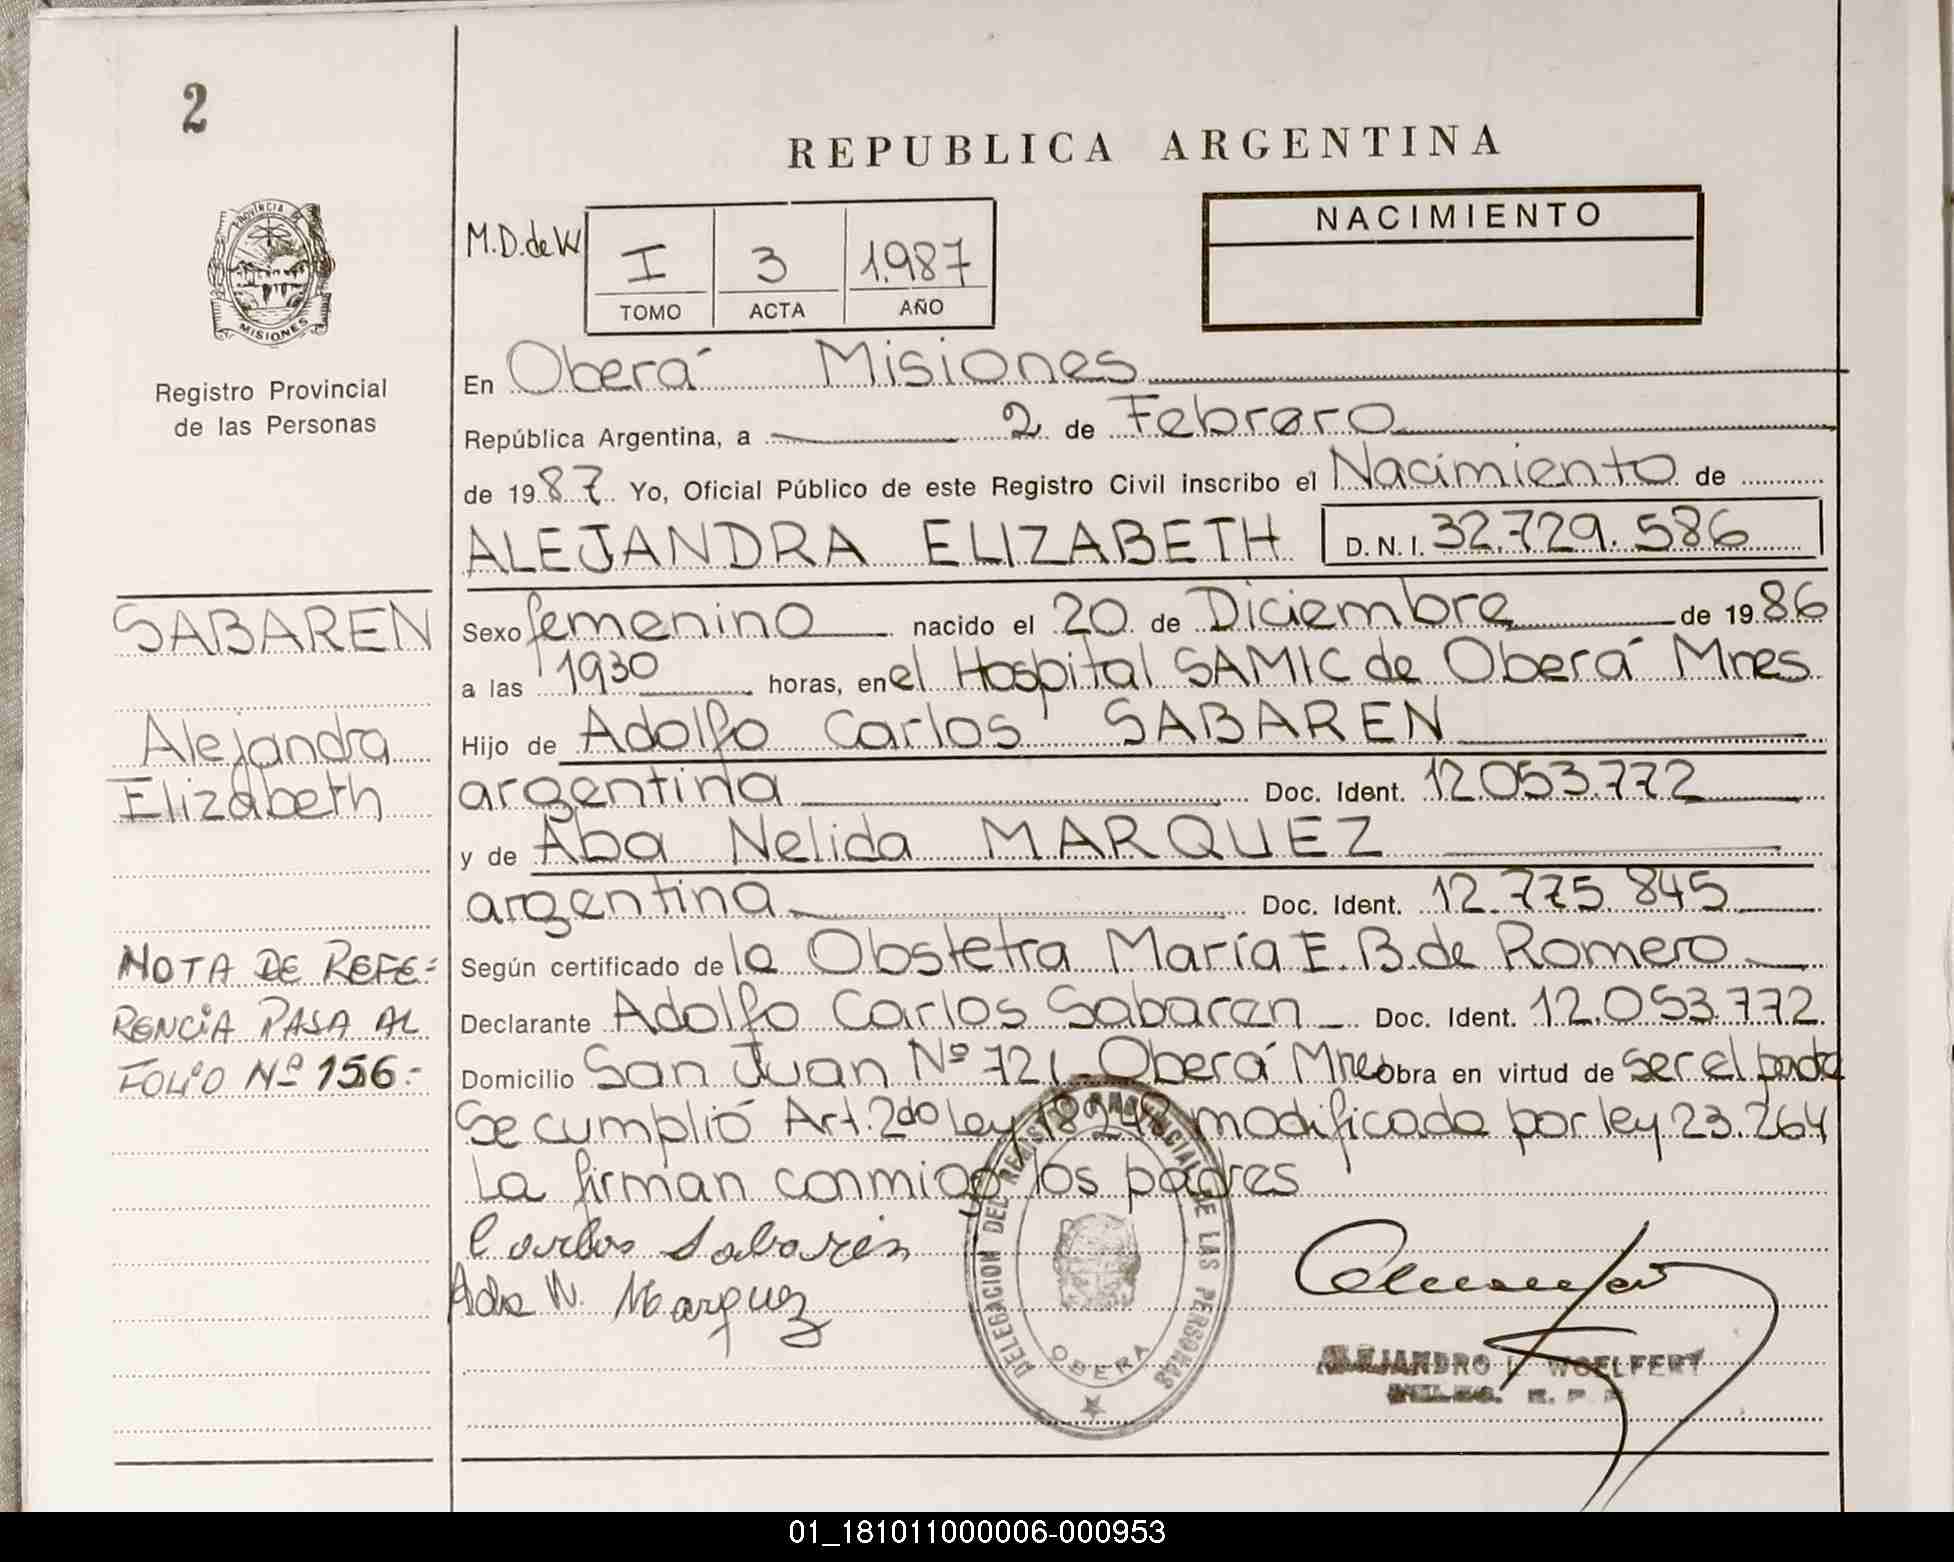 2
REPUBLICA ARGENTINA
PROVINCIA DE
MISIONES
Registro Provincial
de las Personas
M.D.de W
I 3 1.987
TOMO ACTA AÑO
NACIMIENTO
En Oberá Misiones
República Argentina, a 2 de Febrero
de 1987. Yo, Oficial Público de este Registro Civil inscribo el Nacimiento de
ALEJANDRA ELIZABETH D.N.I. 32.729.586
SABAREN
Alejandra
Elizabeth
Sexo femenino nacido el 20 de Diciembre de 1986
a las 1930 horas, en el Hospital SAMIC de Oberá Mnes
Hijo de Adolfo Carlos SABAREN
argentina Doc. Ident. 12.053.772
y de Aba Nelida MARQUEZ
argentina Doc. Ident. 12.775.845
Según certificado de la Obstetra María E. B. de Romero
Declarante Adolfo Carlos Sabaren Doc. Ident. 12.053.772
Domicilio San Juan Nº 721 Oberá Mnes obra en virtud de ser el padre
Se cumplió Art. 2do Ley 18248 modificada por ley 23.264
La firman conmigo los padres
NOTA DE REFE=
RENCIA PASA AL
FOLIO Nº 156.-
Carlos Sabarén
Ada N. Marquez
DELEGACION DEL REGISTRO PROVINCIAL DE LAS PERSONAS
OBERA
ALEJANDRO L. WOELFERT
01_181011000006-000953